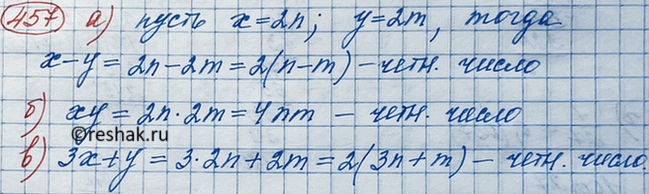 457 а) пусть x=2n; y=2m, тогда
x-y = 2n-2m = 2(n-m) - четн. число
б) xy = 2n·2m = 4nm - четн. число
©reshak.ru
в) 3x+y = 3·2n+2m = 2(3n+m) - четн. число.